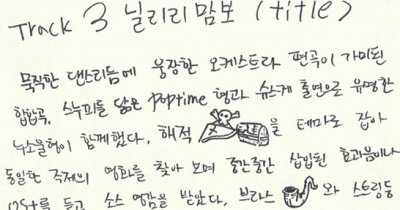 Track 3 닐리리맘보 (title)
묵직한 댄스리듬에 웅장한 오케스트라 편곡이 가미된
힙합곡. 스누피를 닮은 Poptime 형과 슈스케 출연으로 유명한
형이 함께했다. 해적 을 테마로 잡아
동일한 주제의 영화를 찾아 보며 중간중간 삽입된 효과음이나
OST를 듣고 소스 영감을 받았다. 브라스 와 스트링 등